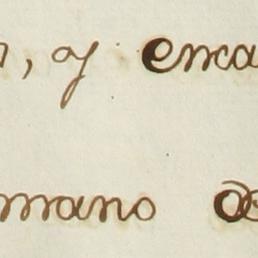 , y enca
mano